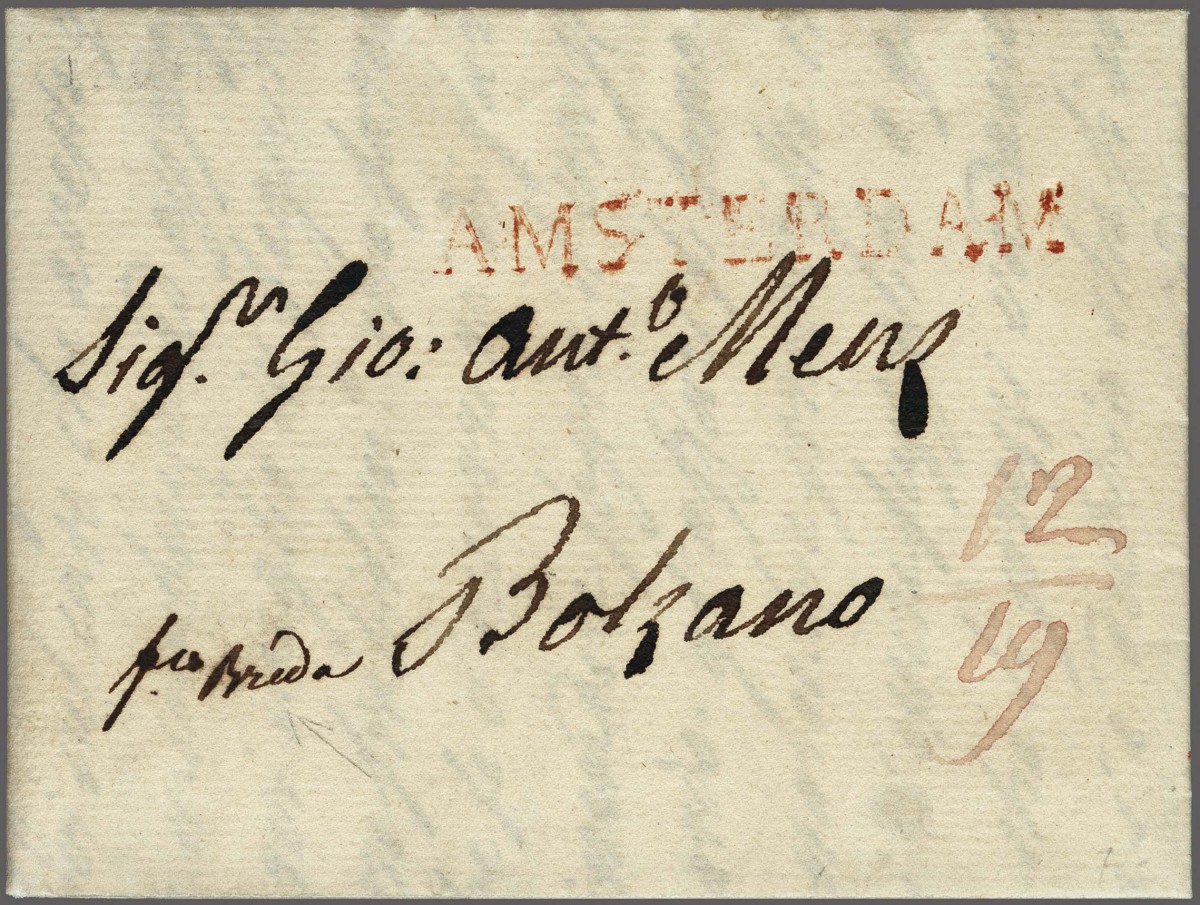 AMSTERDAM
Sig.r Gio: Ant.o Menz
Bolzano
f.co Breda
12
19